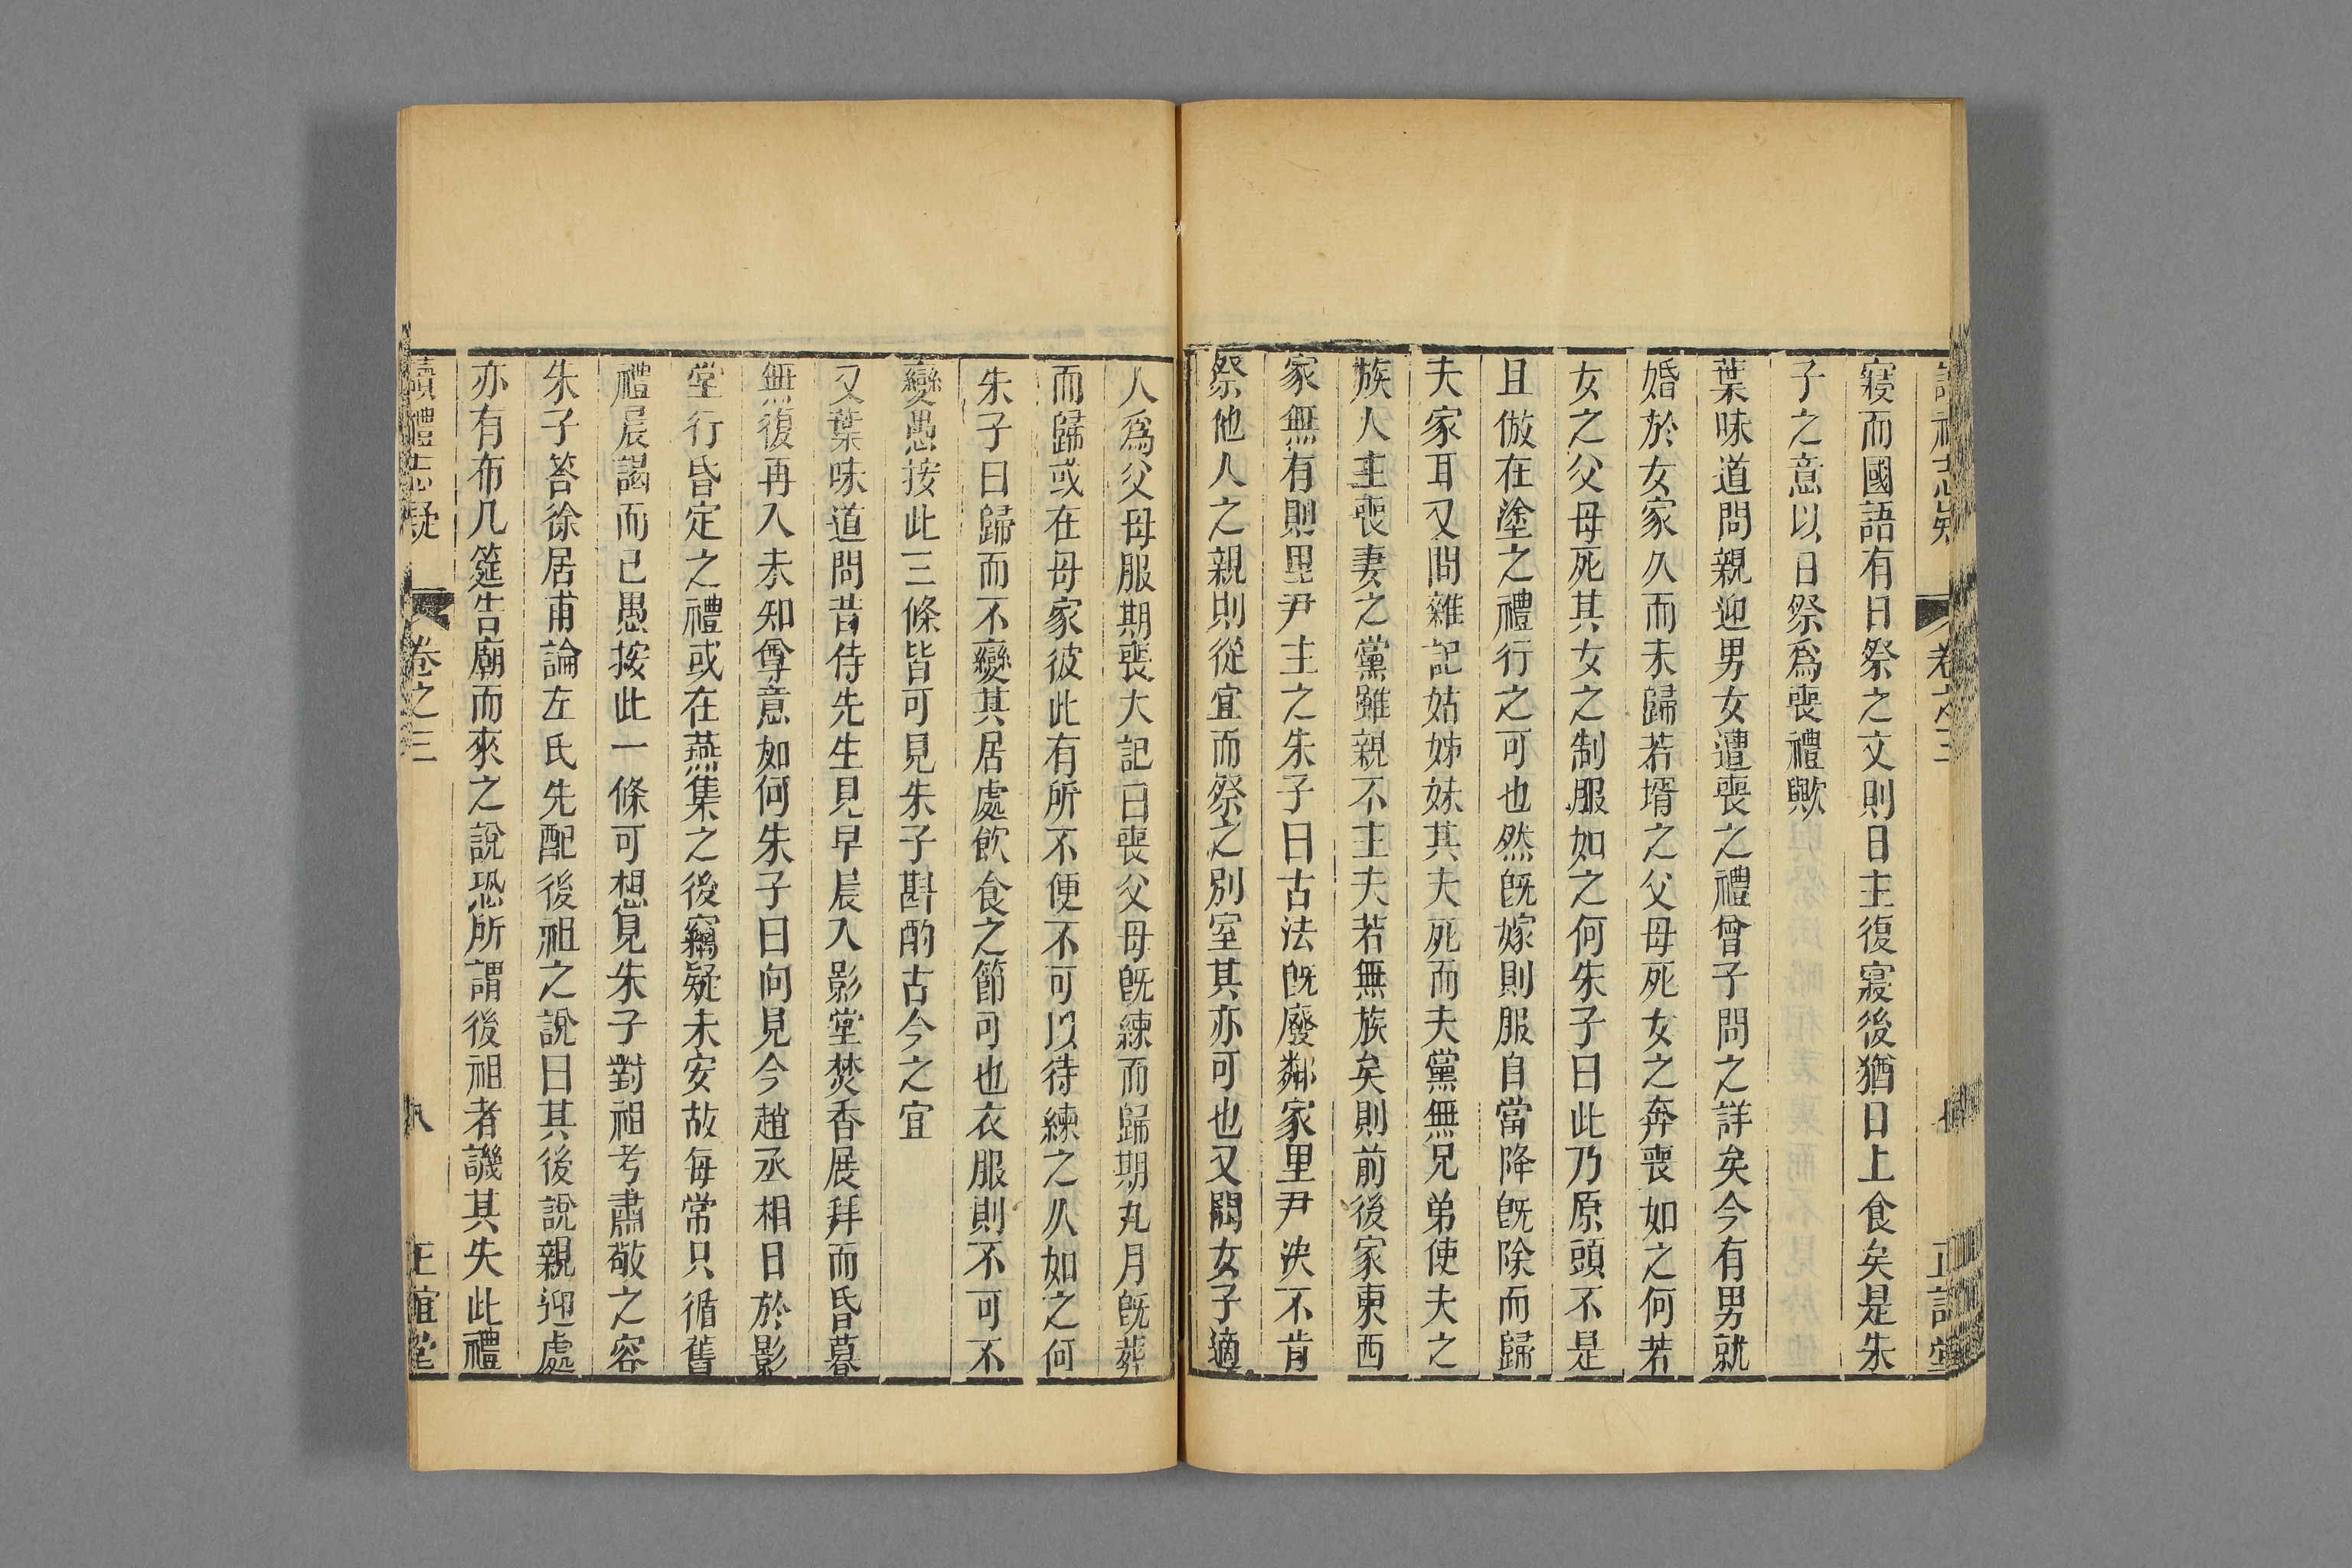 寢而國語有日祭之文則日主復寢後猶日上食矣是朱
子之意以日祭爲喪禮歟
葉味道問親迎男女遭喪之禮曾子問之詳矣今有男就
婚於女家久而未歸若壻之父母死女之奔喪如之何若
女之父母死其女之制服如之何朱子曰此乃原頭不是
且倣在塗之禮行之可也然旣嫁則服自當降旣除而歸
夫家耳又問雜記姑姊妹其夫死而夫黨無兄弟使夫之
族人主喪妻之黨雖親不主夫若無族矣則前後家東西
家無有則里尹主之朱子曰古法旣廢鄰家里尹决不肯
祭他人之親則從宜而祭之別室其亦可也又問女子適
人爲父母服期喪大記曰喪父母旣練而歸期九月旣葬
而歸或在母家彼此有所不便不可以待練之久如之何
朱子曰歸而不變其居處飲食之節可也衣服則不可不
變愚按此三條皆可見朱子斟酌古今之宜
又葉味道問昔侍先生見早晨入影堂焚香展拜而昏暮
無復再入未知尊意如何朱子曰向見今趙丞相日於影
堂行昏定之禮或在燕集之後竊疑未安故每常只循舊
禮晨謁而已愚按此一條可想見朱子對祖考肅敬之容
朱子答徐居甫論左氏先配後祖之說曰其後說親迎處
亦有布几筵告廟而來之說恐所謂後祖者譏其失此禮
讀禮志疑 卷之三 八 正誼堂